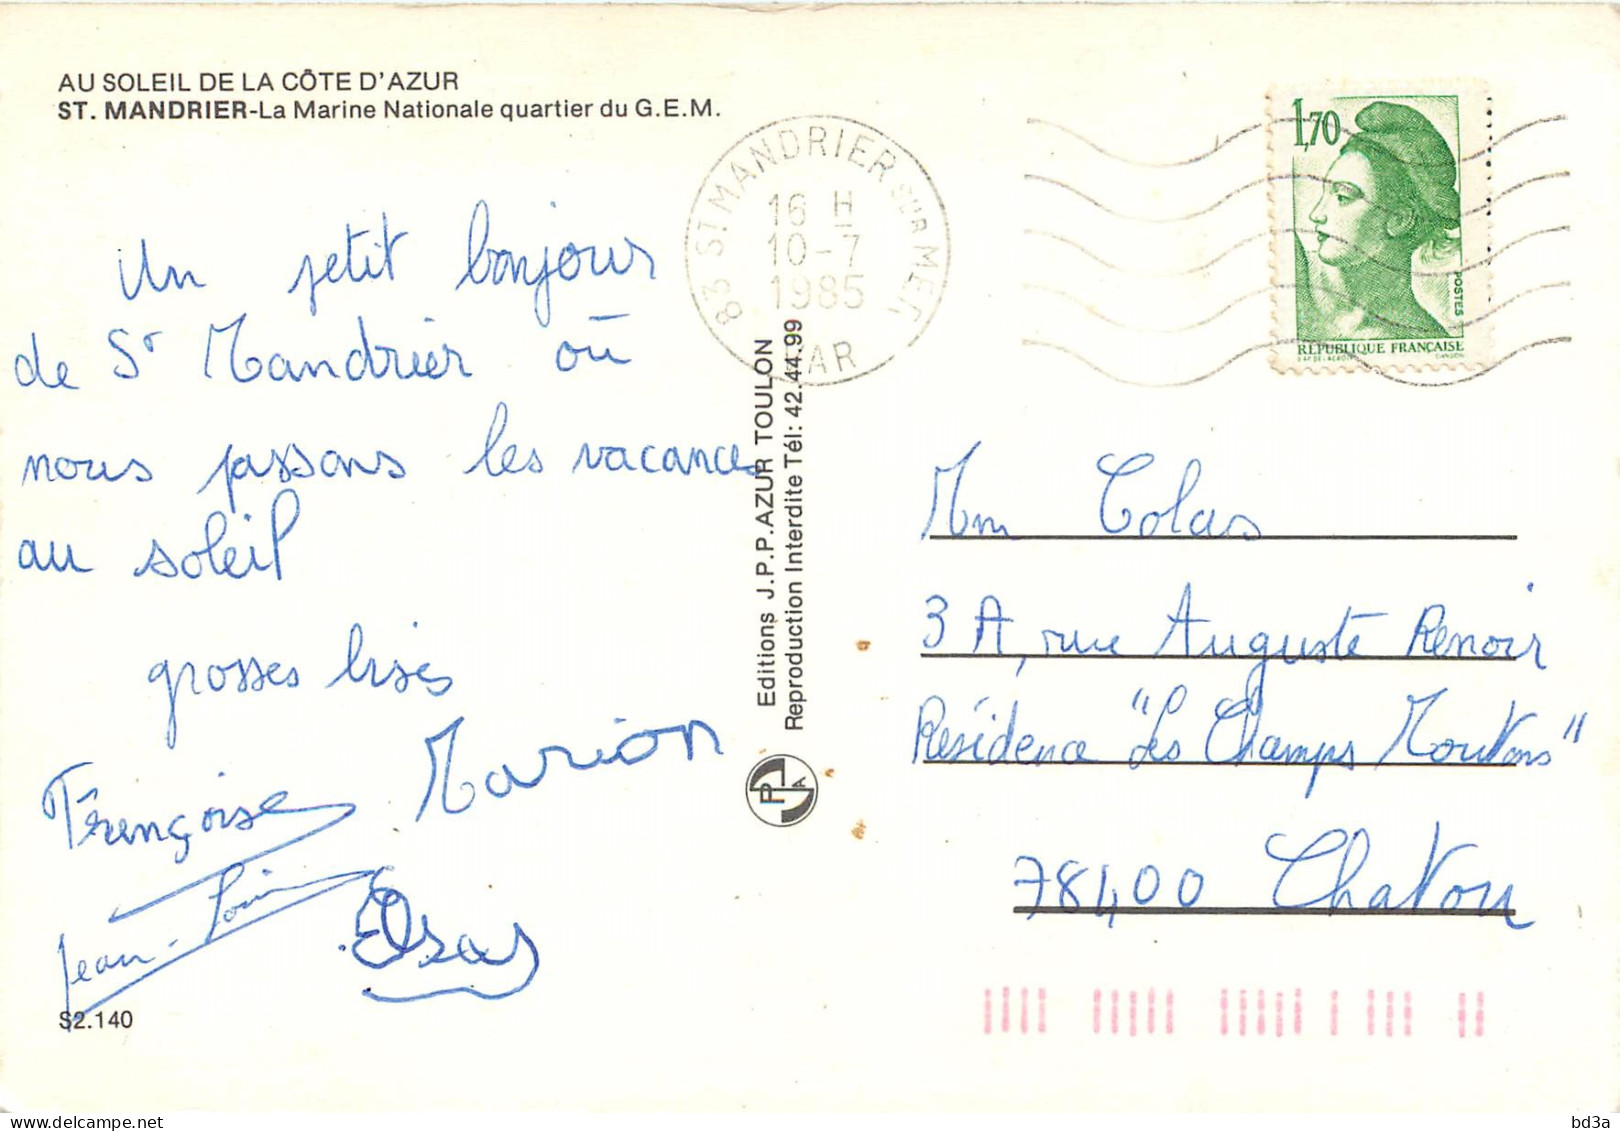 AU SOLEIL DE LA CÔTE D'AZUR
ST. MANDRIER-La Marine Nationale quartier du G.E.M.
Un petit bonjour
de St Mandrier où
nous passons les vacances
au soleil
grosses bises
Françoise
Marion
Jean-Louis
Elsa
S2.140
83 ST MANDRIER SUR MER
16 H
10-7
1985
VAR
Editions J.P.P.AZUR TOULON
Reproduction Interdite Tél: 42.44.99
P A
1,70
POSTES
RÉPUBLIQUE FRANÇAISE
D'AP. DELACROIX GANDON
Mm Colas
3 A, rue Auguste Renoir
Résidence "Les Champs Moutons"
78400 Chatou
bd3a